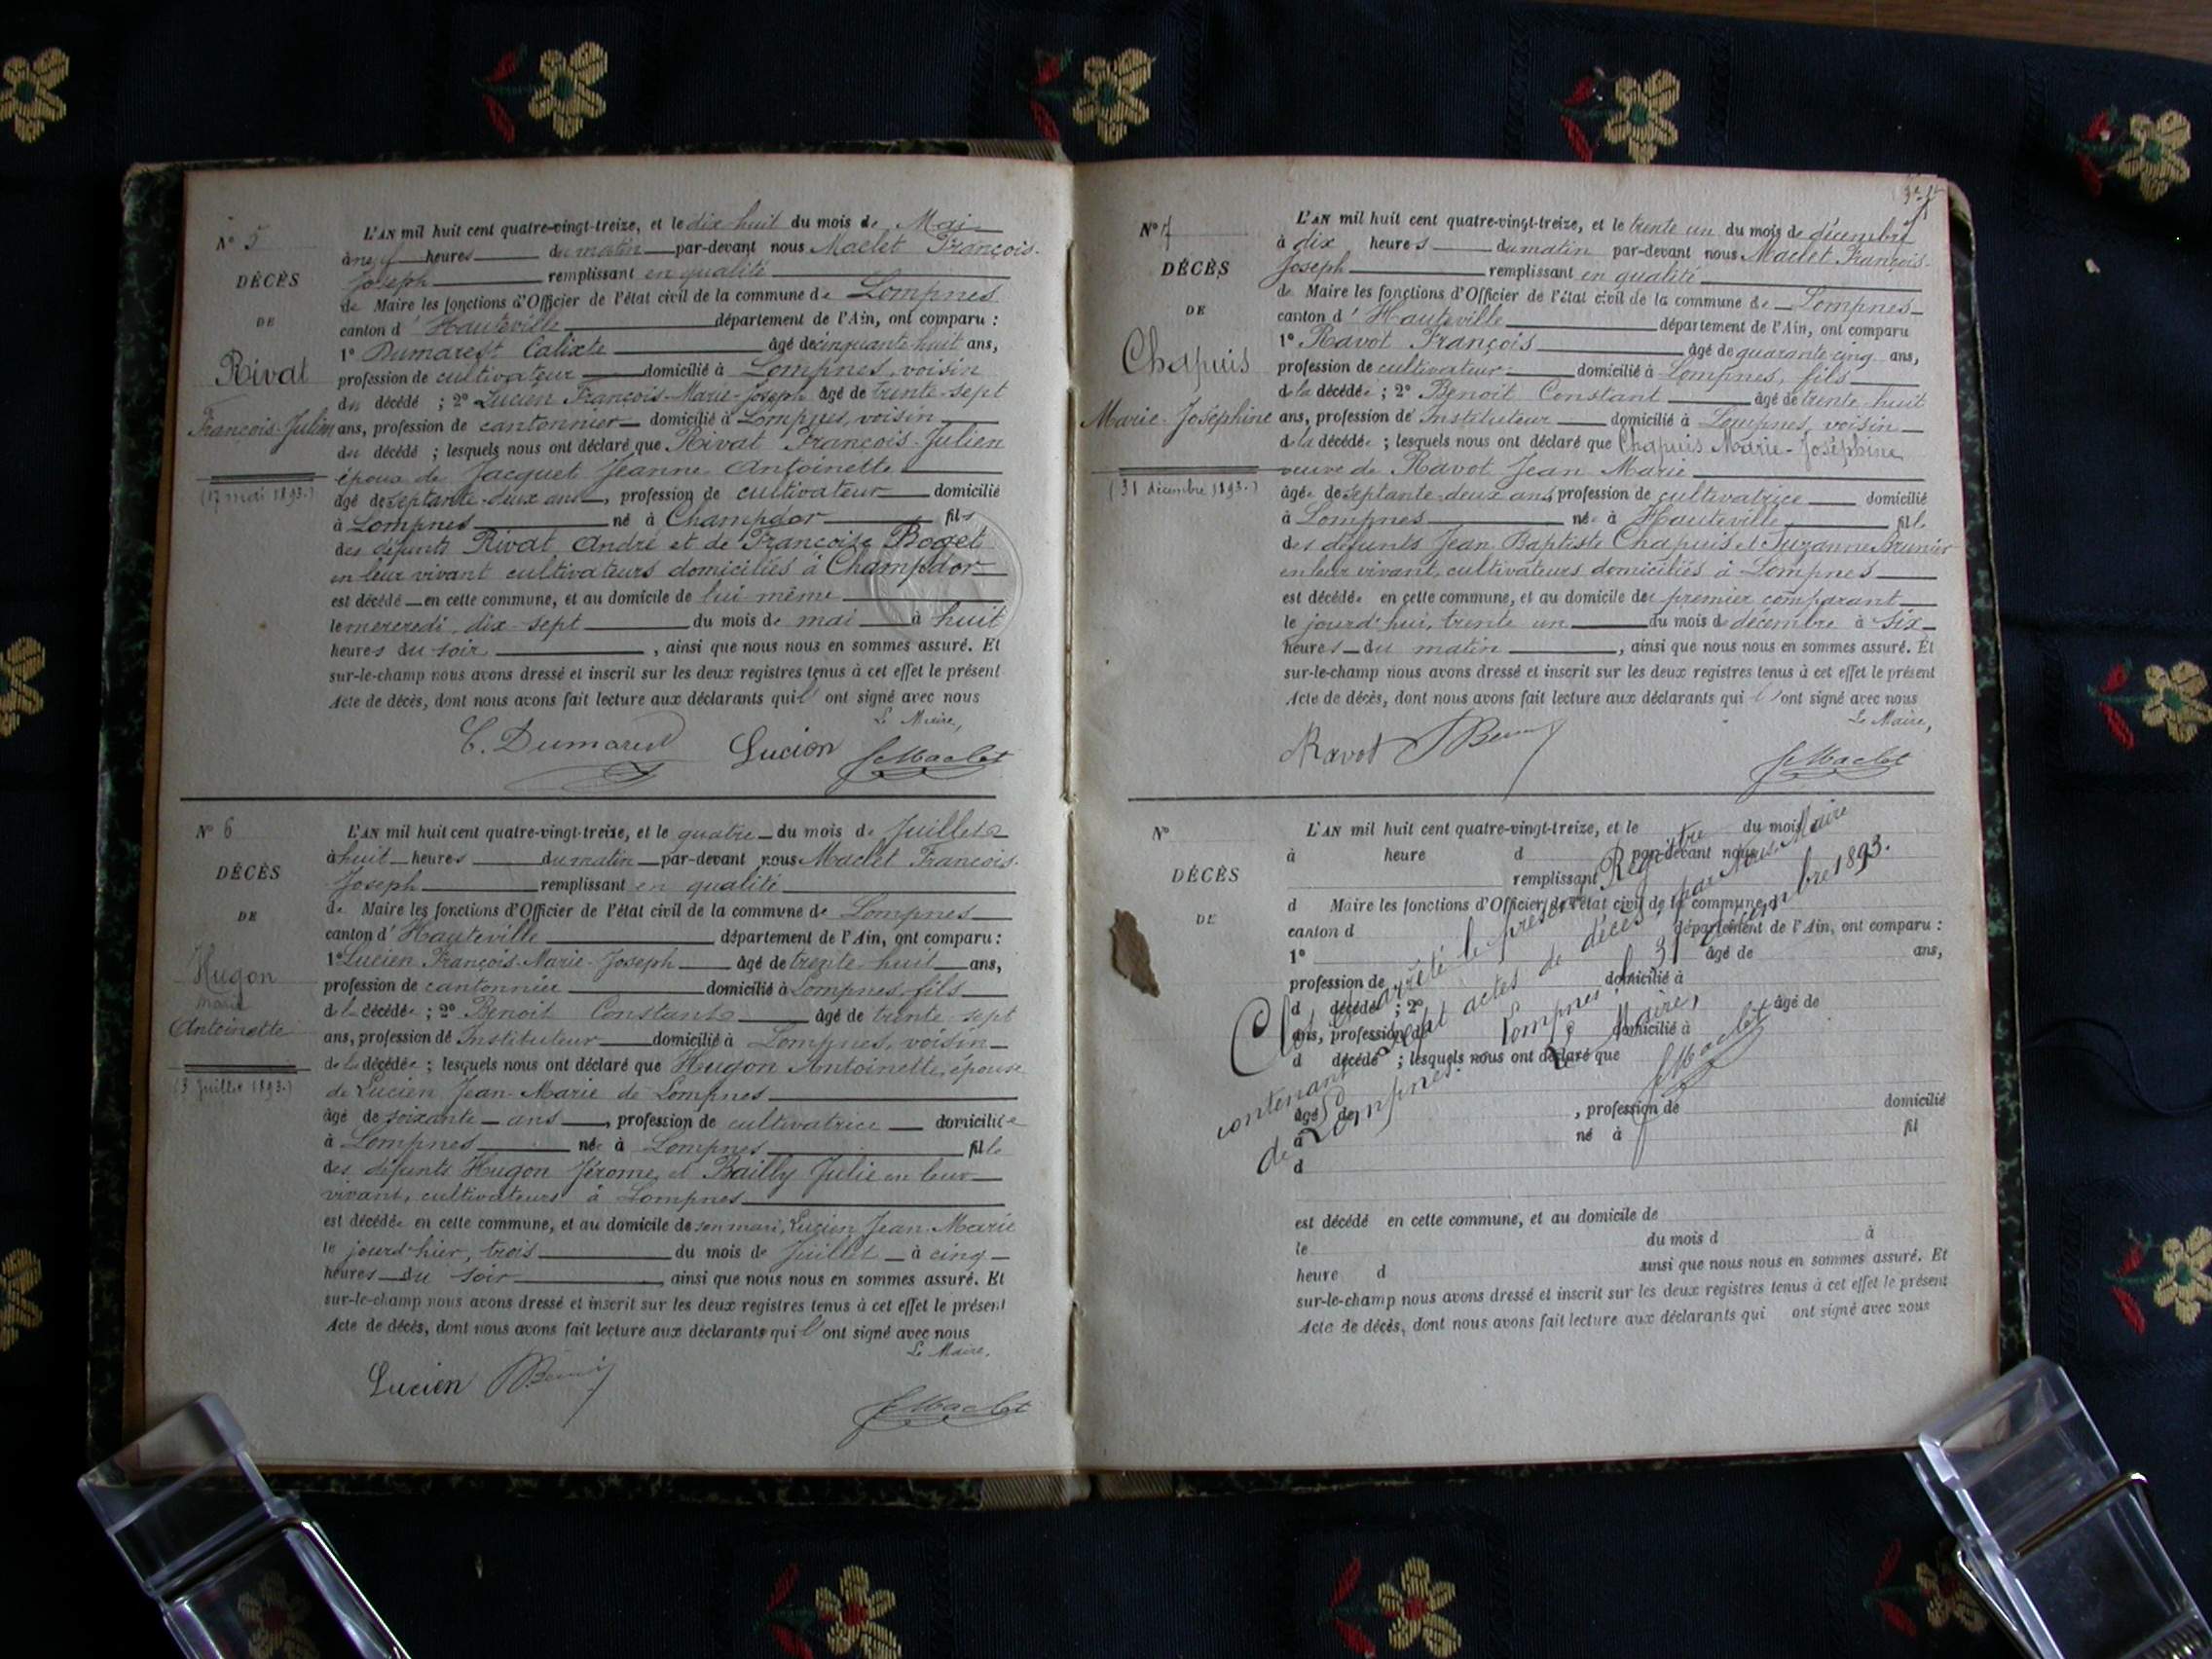 N° 5
DÉCÈS
DE
Rivat
François-Julien
(17 mai 1893.)
L'AN mil huit cent quatre-vingt-treize, et le dix-huit du mois de Mai
à neuf heures du matin par-devant nous Maclet François-
Joseph remplissant en qualité
de Maire les fonctions d'Officier de l'état civil de la commune de Lompnes
canton d'Hauteville département de l'Ain, ont comparu :
1° Dumarest Calixte âgé de cinquante-huit ans,
profession de cultivateur domicilié à Lompnes, voisin
du décédé ; 2° Lucien François-Marie-Joseph âgé de trente-sept
ans, profession de cantonnier domicilié à Lompnes, voisin
du décédé ; lesquels nous ont déclaré que Rivat François-Julien
époux de Jacquet Jeanne Antoinette
âgé de septante-deux ans, profession de cultivateur domicilié
à Lompnes né à Champdor fils
des défunts Rivat André et de Françoise Boget
en leur vivant cultivateurs domiciliés à Champdor
est décédé en cette commune, et au domicile de lui-même
le mercredi, dix-sept du mois de mai à huit
heures du soir, ainsi que nous nous en sommes assuré. Et
sur-le-champ nous avons dressé et inscrit sur les deux registres tenus à cet effet le présent
Acte de décès, dont nous avons fait lecture aux déclarants qui l'ont signé avec nous
Le Maire,
C. Dumarest Lucien Maclet
N° 6
DÉCÈS
DE
Hugon
Marie
Antoinette
(3 Juillet 1893.)
L'AN mil huit cent quatre-vingt-treize, et le quatre du mois de Juillet
à huit heures du matin par-devant nous Maclet François-
Joseph remplissant en qualité
de Maire les fonctions d'Officier de l'état civil de la commune de Lompnes
canton d'Hauteville département de l'Ain, ont comparu :
1° Lucien François-Marie-Joseph âgé de trente-huit ans,
profession de cantonnier domicilié à Lompnes, fils
de la décédée ; 2° Benoit Constant âgé de trente-sept
ans, profession de Instituteur domicilié à Lompnes, voisin
de la décédée ; lesquels nous ont déclaré que Hugon Antoinette, épouse
de Lucien Jean-Marie de Lompnes
âgé de soixante ans, profession de cultivatrice domiciliée
à Lompnes née à Lompnes fille
des défunts Hugon Jérome et Bailly Julie en leur
vivant, cultivateurs à Lompnes
est décédée en cette commune, et au domicile de son mari, Lucien Jean-Marie
le jourd'hier, trois du mois de Juillet à cinq
heures du soir, ainsi que nous nous en sommes assuré. Et
sur-le-champ nous avons dressé et inscrit sur les deux registres tenus à cet effet le présent
Acte de décès, dont nous avons fait lecture aux déclarants qui l'ont signé avec nous
Le Maire,
Lucien Benoit Maclet
N° 7
DÉCÈS
DE
Chapuis
Marie-Joséphine
(31 décembre 1893.)
L'AN mil huit cent quatre-vingt-treize, et le trente un du mois de décembre
à dix heures du matin par-devant nous Maclet François-
Joseph remplissant en qualité
de Maire les fonctions d'Officier de l'état civil de la commune de Lompnes
canton d'Hauteville département de l'Ain, ont comparu
1° Ravot François âgé de quarante-cinq ans,
profession de cultivateur domicilié à Lompnes, fils
de la décédée ; 2° Benoit Constant âgé de trente-huit
ans, profession de Instituteur domicilié à Lompnes, voisin
de la décédée ; lesquels nous ont déclaré que Chapuis Marie-Joséphine
veuve de Ravot Jean Marie
âgée de septante-deux ans, profession de cultivatrice domicilié
à Lompnes née à Hauteville fille
des défunts Jean Baptiste Chapuis et Suzanne Brunier
en leur vivant, cultivateurs domiciliés à Lompnes
est décédée en cette commune, et au domicile du premier comparant
le jourd'hui, trente un du mois de décembre à six
heures du matin, ainsi que nous nous en sommes assuré. Et
sur-le-champ nous avons dressé et inscrit sur les deux registres tenus à cet effet le présent
Acte de décès, dont nous avons fait lecture aux déclarants qui l'ont signé avec nous
Le Maire,
Ravot Benoit Maclet
N°
DÉCÈS
DE
L'AN mil huit cent quatre-vingt-treize, et le du mois
à heure d par-devant nous
remplissant
d Maire les fonctions d'Officier de l'état civil de la commune d
canton d département de l'Ain, ont comparu :
1° âgé de ans,
profession de domicilié à
d décédé ; 2° âgé de
ans, profession de domicilié à
d décédé ; lesquels nous ont déclaré que
âgé de , profession de domicilié
à né à fil
d
est décédé en cette commune, et au domicile de
le du mois d à
heure d ainsi que nous nous en sommes assuré. Et
sur-le-champ nous avons dressé et inscrit sur les deux registres tenus à cet effet le présent
Acte de décès, dont nous avons fait lecture aux déclarants qui ont signé avec nous
Clos et arrêté le présent Registre
contenant sept actes de décès, par Nous, Maire
de Lompnes.
Lompnes, le 31 décembre 1893.
Le Maire,
Maclet